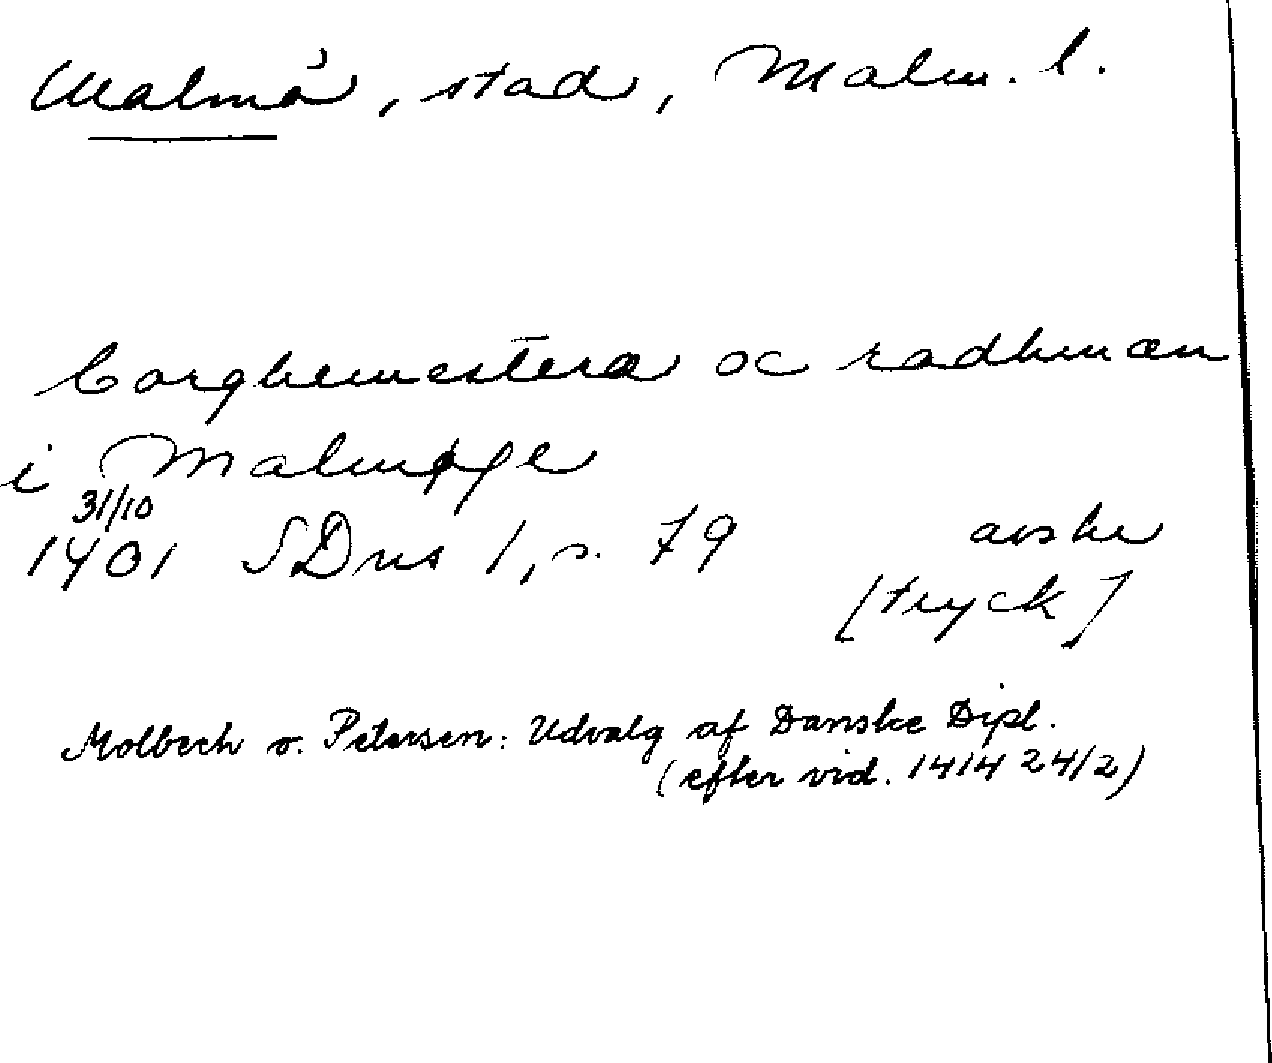 Malmö, stad, Malm. l.
borghemestera oc radhmæn
i Malmøge
31/10
1401 SDns 1, s. 79 avskr
[tryck]
Molbech o. Petersen: Udvalg af Danske Dipl.
(efter vid. 1414 24/2)